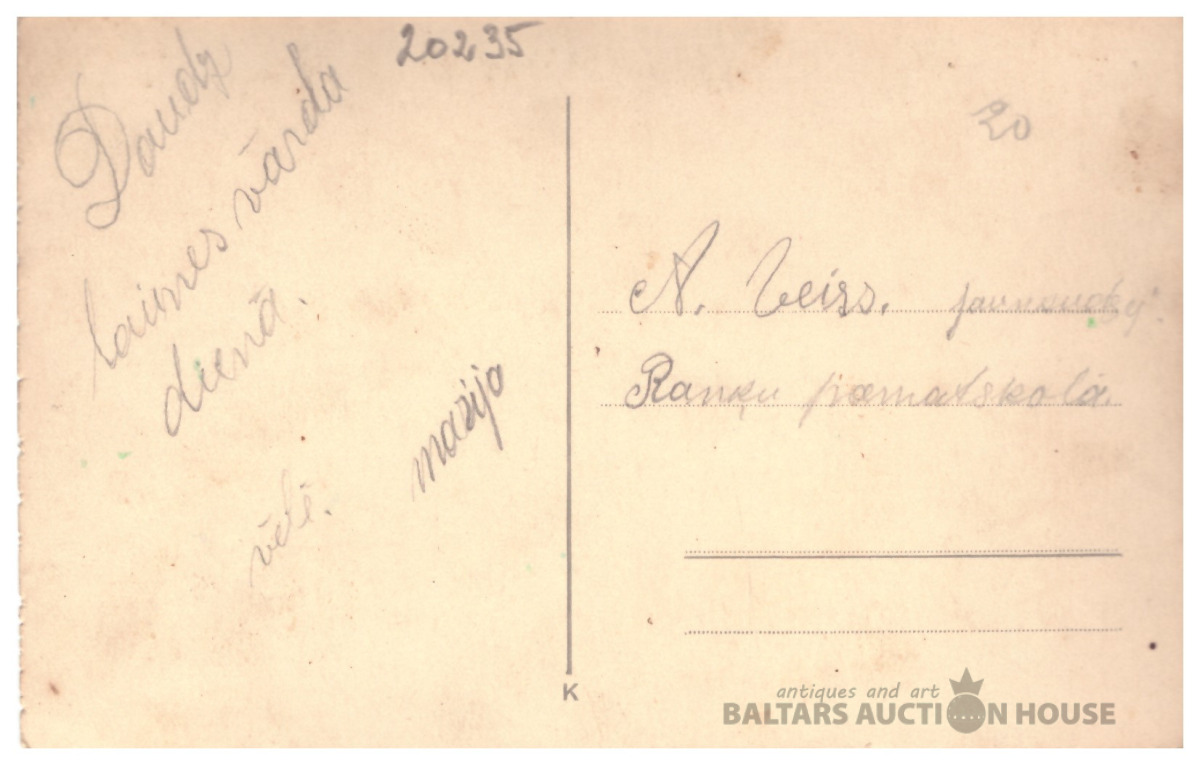 20235
20
Daudz
laimes vārda
dienā.
vēlē.
marija
A. Veiss.
Ranku pamatskolā.
K
antiques and art
BALTARS AUCTION HOUSE